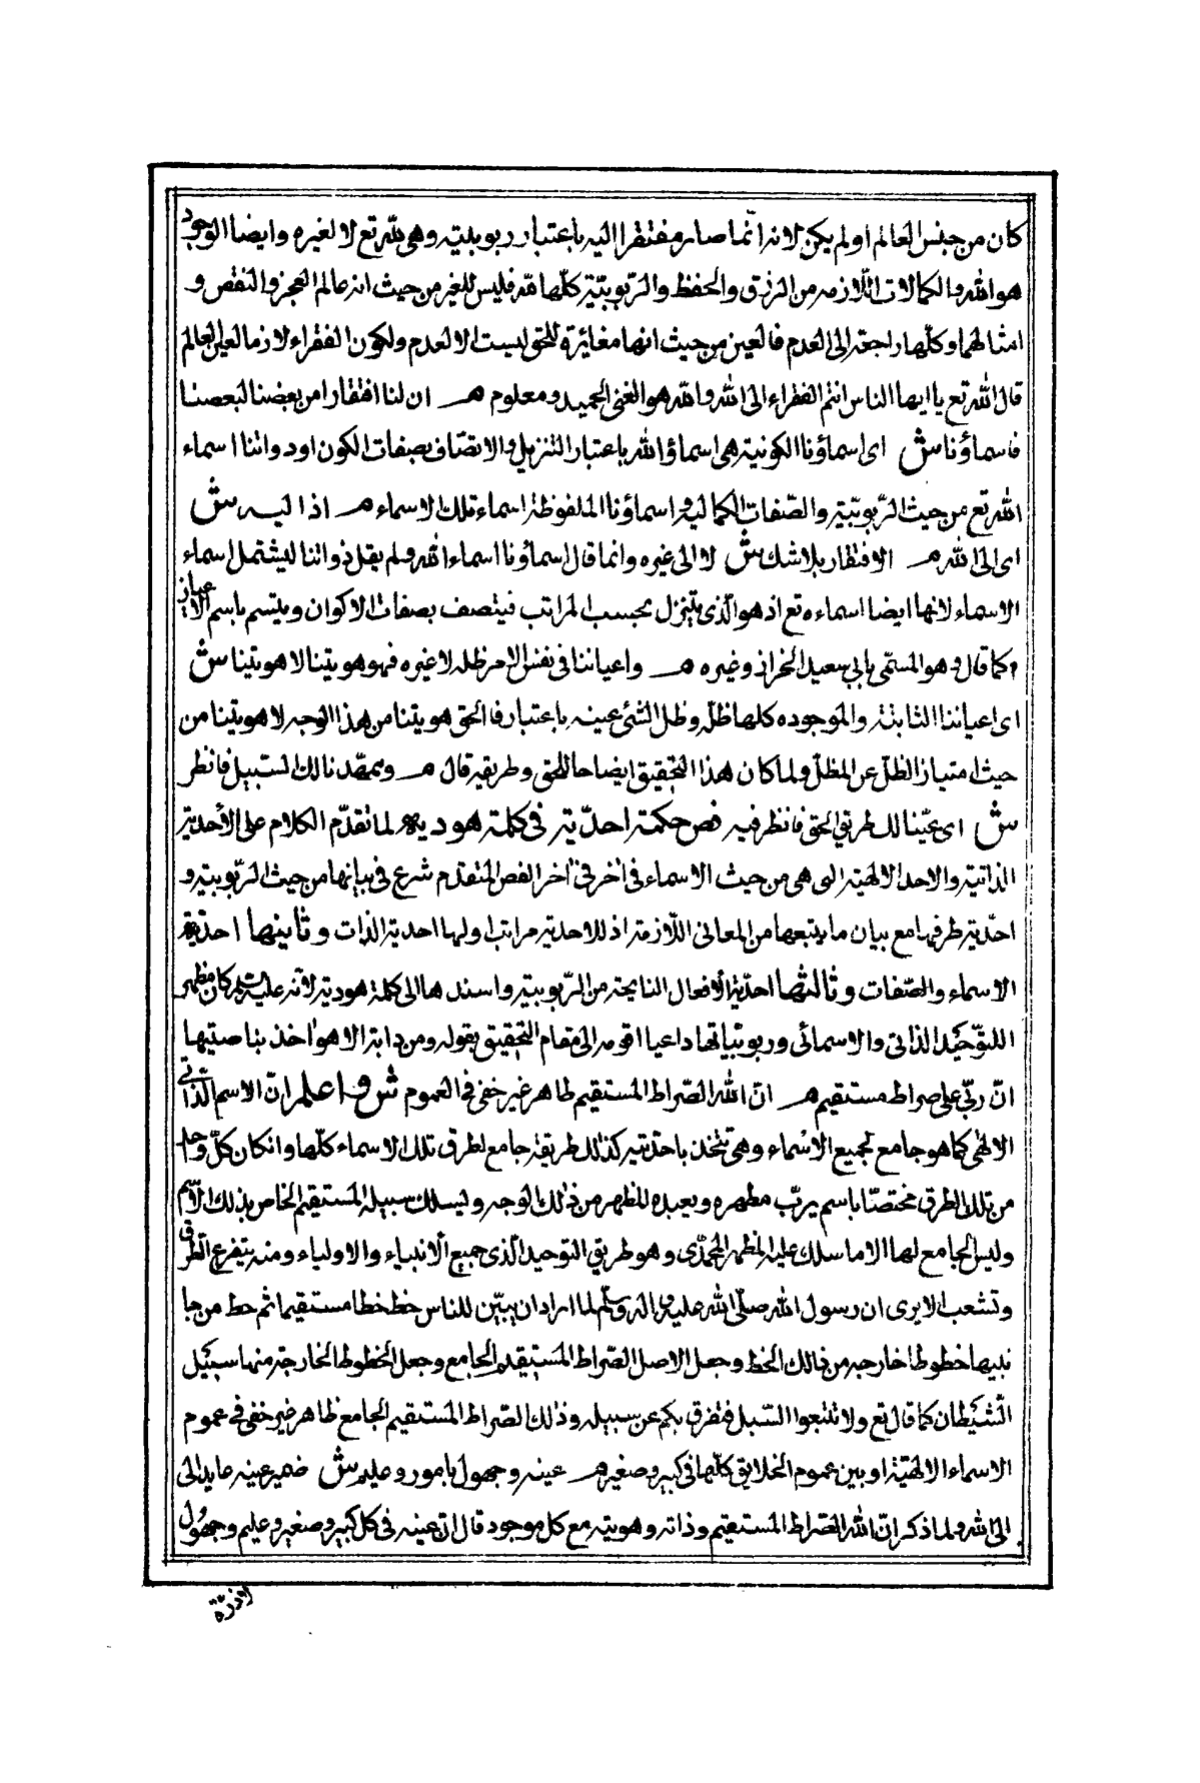 كان من جنس العالم او لم يكن لانه انما صار مفتقرا اليه باعتبار ربوبيته وهى لله تع لا لغيره وايضا الوجود
هو الله والكمالات اللازمه من الرزق والحفظ والربوبيّة كلّها لله فليس للغير من حيث انه عالم العجز والنقص و
امثالهما وكلّها راجعة الى العدم فالعين من حيث انها مغائرة للحق ليست الا العدم ولكون الفقراء لازما لعين العالم
قال الله تع يا ايها الناس انتم الفقراء الى الله والله هو الغنى الحميد ومعلوم م ان لنا افتقارا من بعضنا لبعضنا
فاسماؤنا ش اى اسماؤنا الكونية هى اسماؤ الله باعتبار التنزيل والاتصّاف بصفات الكون او ذواتنا اسماء
الله تع من حيث الرّبوبيّته والصّفات الكماليه واسماؤنا الملفوظة اسماء تلك الاسماء م اذ اليه ش
اى الى الله م الافتقار بلا شك ش لا الى غيره وانما قال اسماؤنا اسماء الله ولم يقل ذواتنا ليشتمل اسماء
الاسماء لانها ايضا اسماءه تع اذ هو الّذى يتنزل بحسب المراتب فيتصف بصفات الاكوان ويتسم باسم الاعيان
كما قال وهو المسمّى بابى سعيد الخراز وغيره م واعياننا فى نفس الامر ظله لا غيره فهو هويتنا لا هويتنا ش
اى اعياننا الثابتة والموجوده كلها ظلّه وظل الشئ عينه باعتبار فالحق هويتنا من هذا الوجه لا هويتنا من
حيث امتياز الظلّ عن المظلّ ولما كان هذا التحقيق ايضاحا للحق وطريقه قال م وقد مهّدنا لك السبيل فانظر
ش اى عيّنا لك طريق الحق فانظر فيه فص حكمة احدّية فى كلمة هوديه لما تقدّم الكلام على الأحدية
الذاتية والاحد الالهية التى هى من حيث الاسماء فى اخر فى اخر الفص المتقدم شرع فى بيانها من حيث الرّبوبيته و
احدّية طرقها مع بيان ما يتبعها من المعانى اللّازمة اذ للاحدية مراتب اولها احدية الذات وثانيها احدّية
الاسماء والصّفات وثالثها احدّية الأفعال الناتجة من الرّبوبيته واسندها الى كلمة هودية لانّه عليه السّلم كان مظهر
اللتوّحيد الذاتى والاسمائى وربوبياتها داعيا قومه الى مقام التحقيق بقوله ومن دابة الا هو اخذ بناصيتها
انّ ربّى على صراط مستقيم م انّ الله الصّراط المستقيم ظاهر غير خفى فى العموم ش واعلم انّ الاسم الذّاتى
الالهى كما هو جامع لجميع الاسماء وهى تتخذ باحدّيته كذلك طريقه جامع لطرق تلك الاسماء كلّها وان كان كلّ واحد
من تلك الطرق مختصّا باسم يربّ مظهره ويعبده المظهر من ذلك الوجه ويسلك سبيله المستقيم الخاص بذلك الاسم
وليس الجامع لها الا ما سلك عليه المظهر المحمّدى وهو طريق التوحيد الّذى جميع الانبياء والاولياء ومنه يتفرع الطرق
وتشعب الا يرى ان رسول الله صلّى الله عليه واله وسلّم لما اراد ان يبيّن للناس خط خطا مستقيما ثم خط من جا
نبيها خطوطا خارجه من ذلك الخط وجعل الاصل الصّراط المستقيم الجامع وجعل الخطوط الخارجة منها سبيل
الشّيطان كما قال تع ولا تتبعوا السّبل فتفرق بكم عن سبيله وذلك الصّراط المستقيم الجامع ظاهر غير خفى فى عموم
الاسماء الالهيّة او بين عموم الخلايق كلّها فى كبير وصغير م عينه وجهول بامور وعليم ش ضمير عينه عايد الى
الى الله ولما ذكر انّ الله الصّراط المستقيم وذاته وهويته مع كل موجود قال انّ عينه فى كل كبير وصغير وعليم وجهول